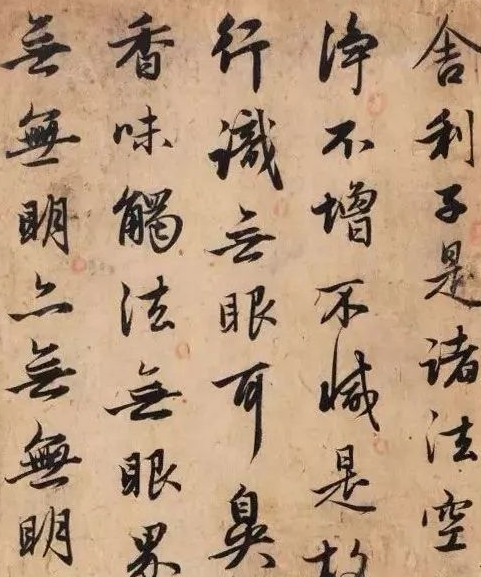 舍利子是諸法空
淨不增不減是故
行識無眼耳鼻
香味觸法無眼界
無無明亦無無明